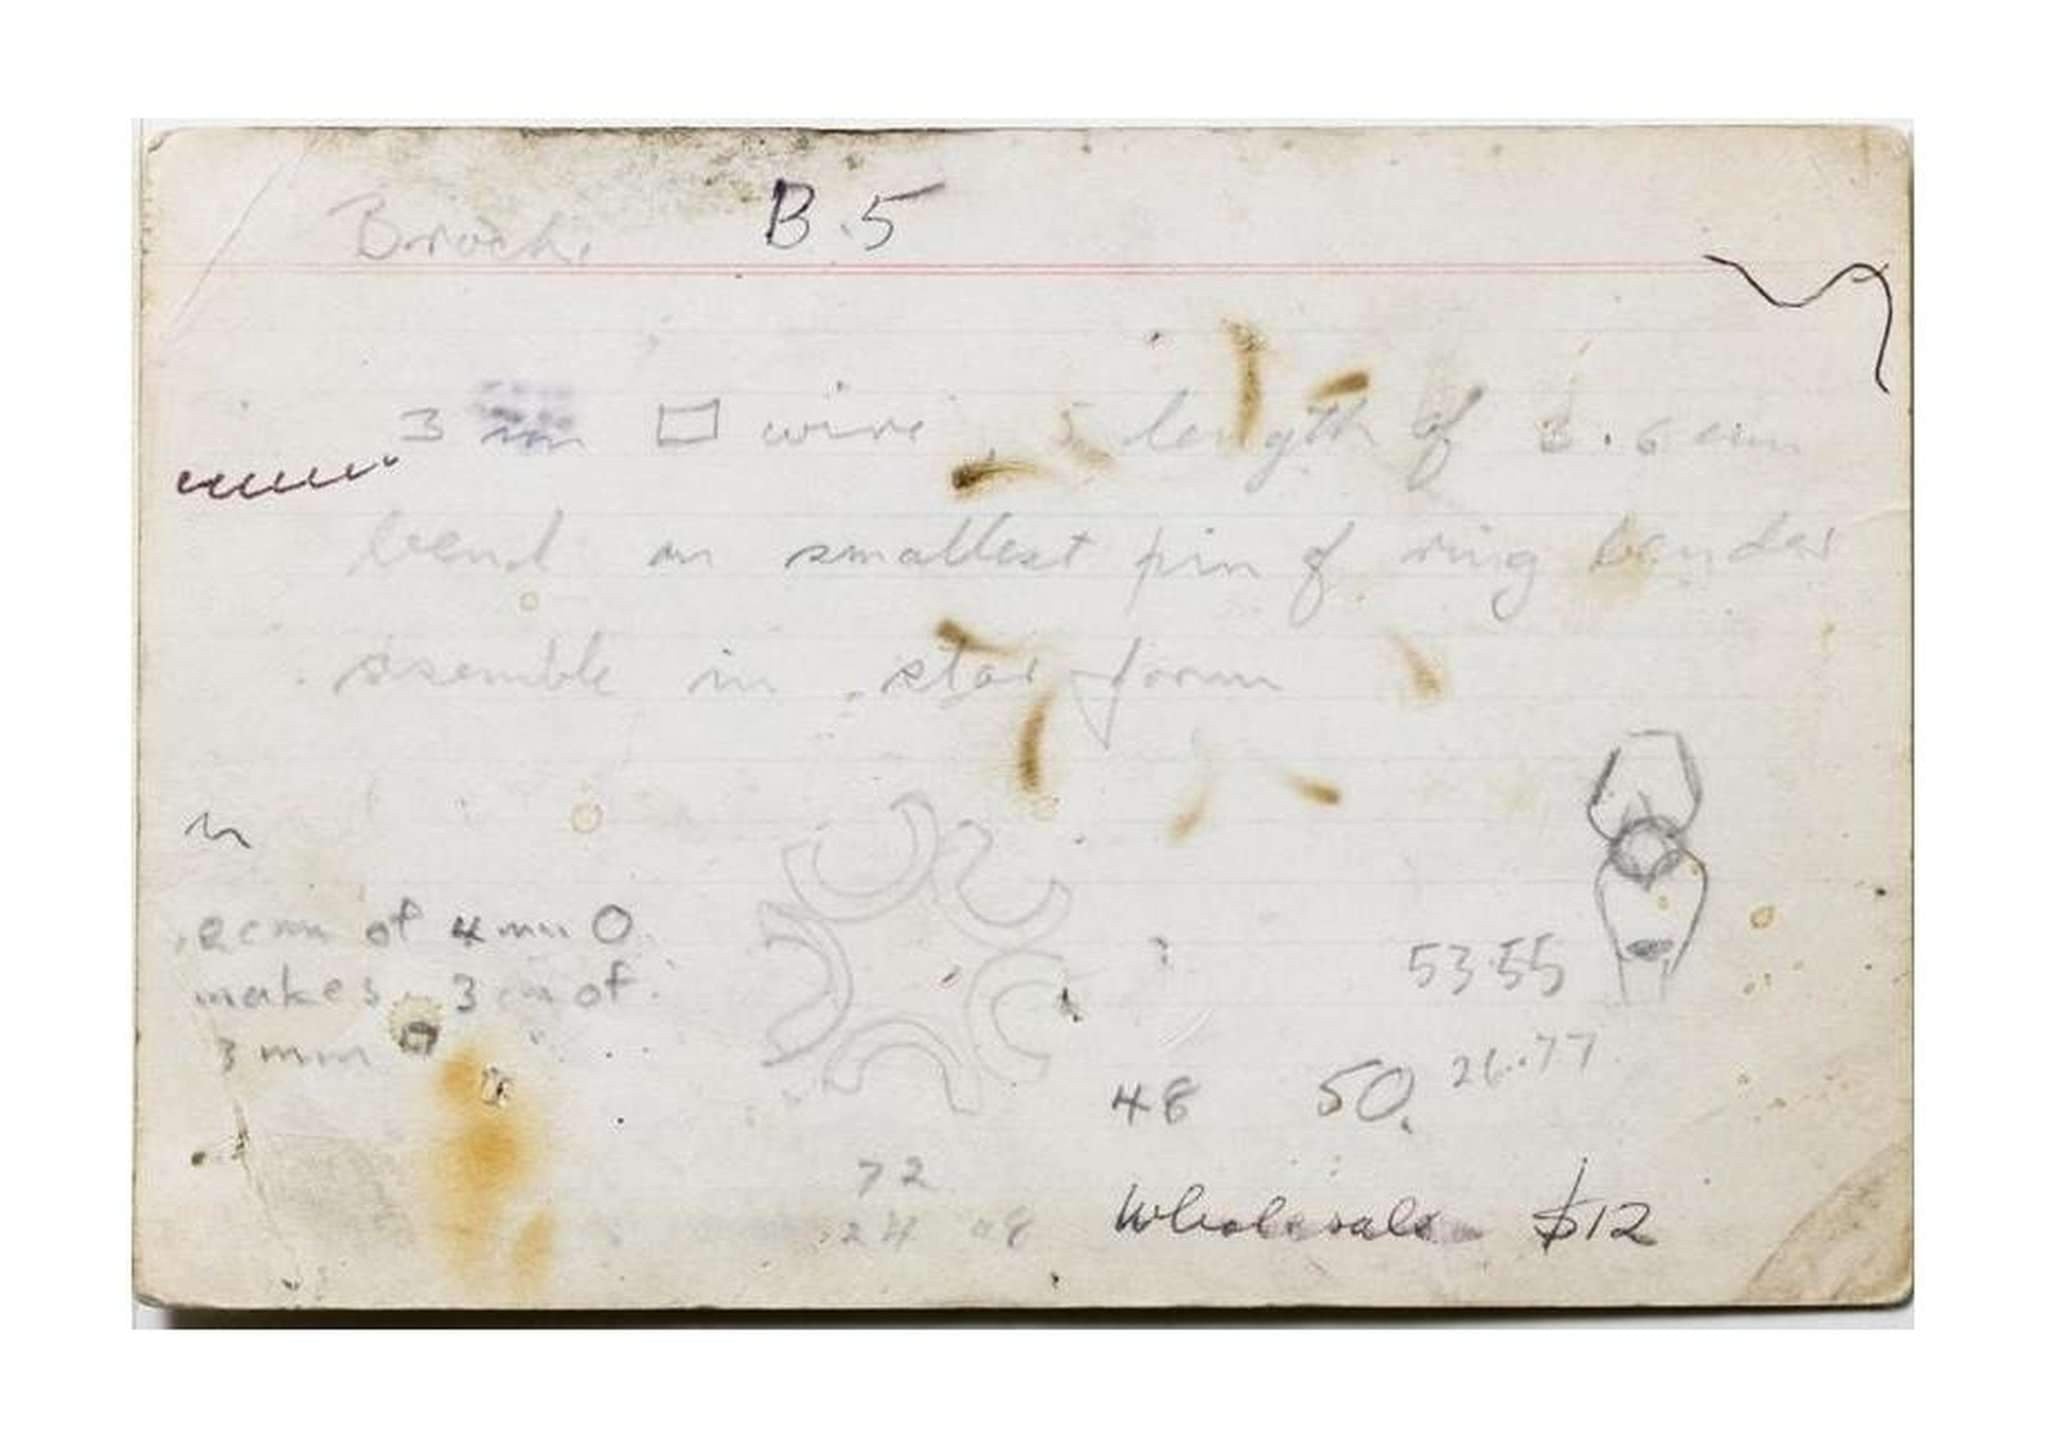 Broch. B.5
3 m □ wire, 5 length of 3.6 cm
bend on smallest pin of ring bender
assemble in star form
2cm of 4mm O
makes 3cm of
3mm □
53.55
48 50. 26.77
72
24 48
Wholesale $12